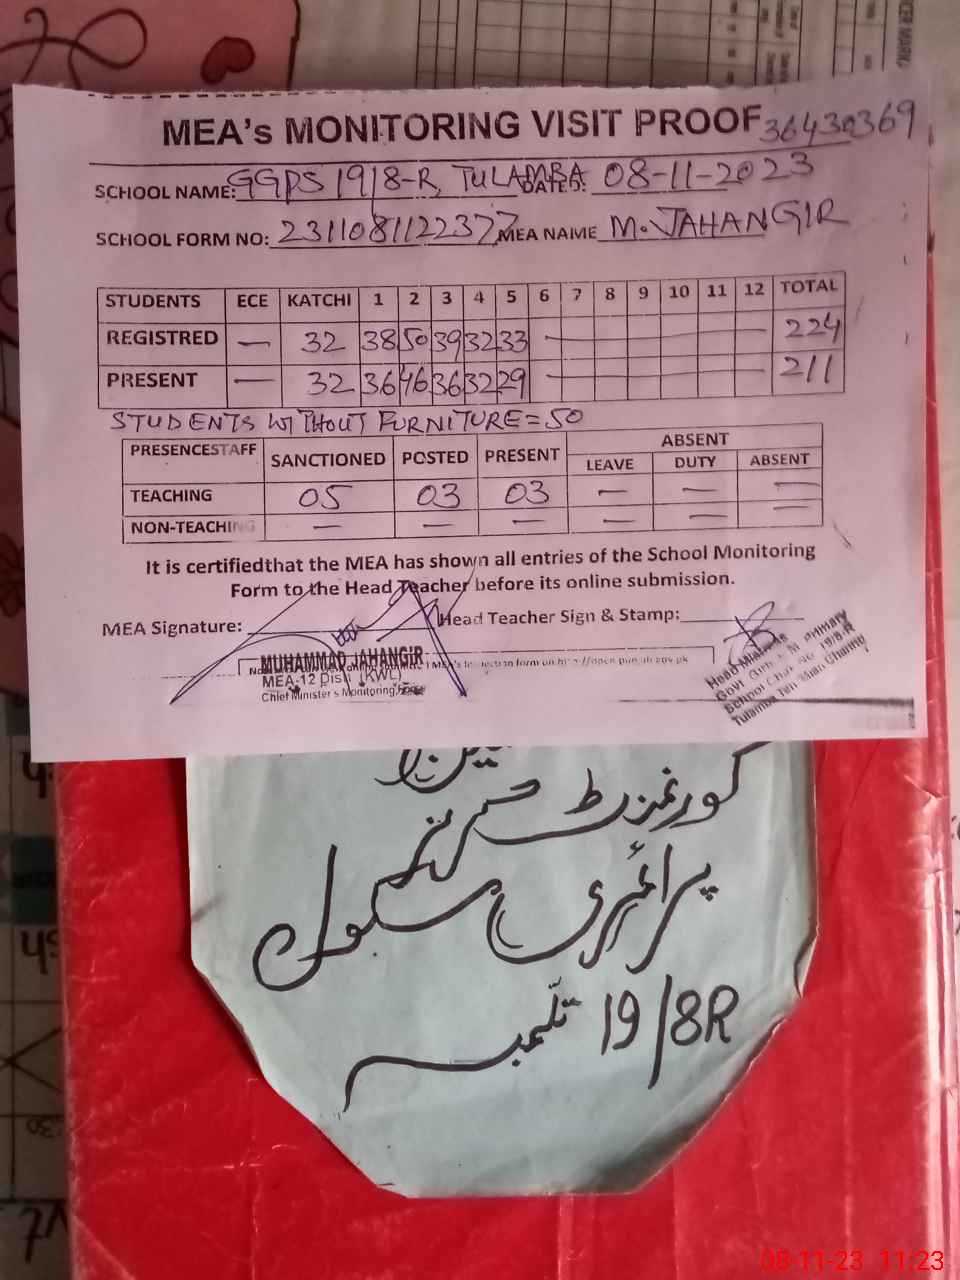 MEA's MONITORING VISIT PROOF 36430369
SCHOOL NAME: GGPS 19/8-R, TULAMBA DATED: 08-11-2023
SCHOOL FORM NO: 2311081122377 MEA NAME M. JAHANGIR
STUDENTS ECE KATCHI 1 2 3 4 5 6 7 8 9 10 11 12 TOTAL
REGISTRED — 32 38 50 39 32 33 — 224
PRESENT — 32 36 46 36 32 29 — 211
STUDENTS WITHOUT FURNITURE = 50
PRESENCESTAFF SANCTIONED POSTED PRESENT ABSENT
LEAVE DUTY ABSENT
TEACHING 05 03 03 — — —
NON-TEACHING — — — — — —
It is certifiedthat the MEA has shown all entries of the School Monitoring
Form to the Head Teacher before its online submission.
MEA Signature: Head Teacher Sign & Stamp:
MUHAMMAD JAHANGIR
MEA's Inspection form on
MEA-12 Distt (KWL)
Chief Minister's Monitoring Force
Head Mistress Primary
School
Tulamba
گورنمنٹ گرلز
پرائمری سکول
19/8R تلمبہ
08-11-23 11:23